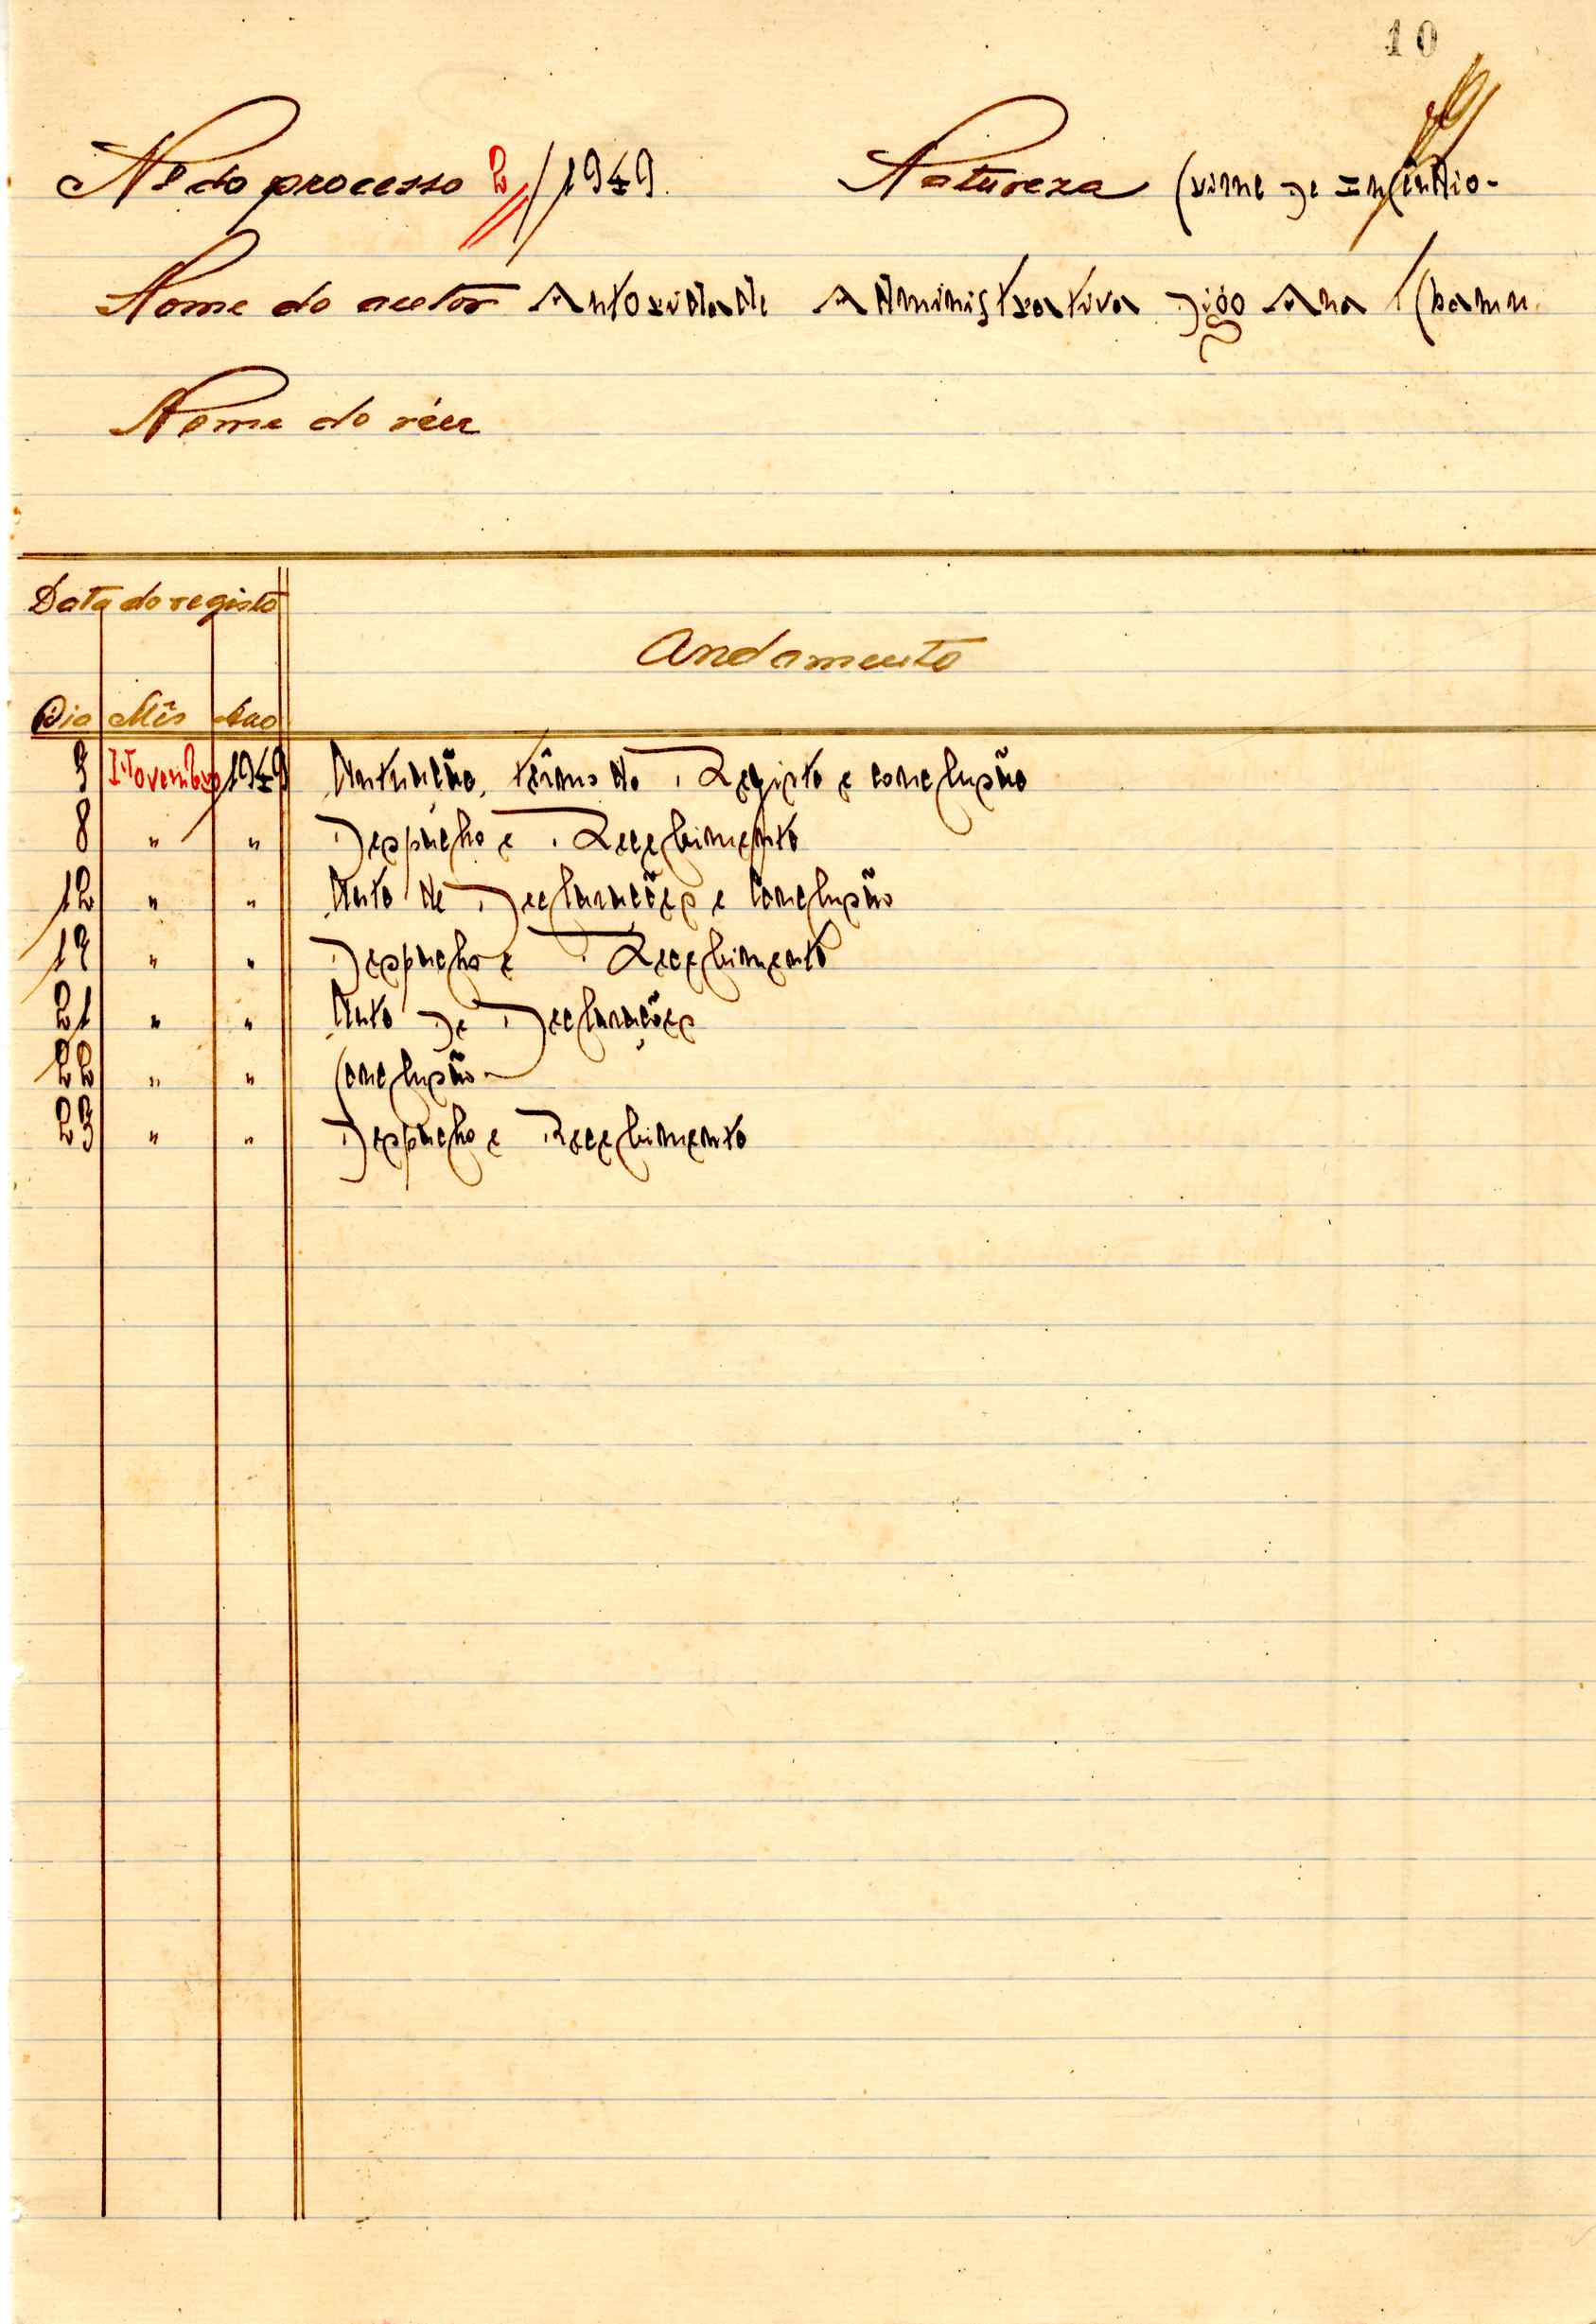 10
Nº do processo 2/1949. Natureza Crime de Incendio-
Nome do autor Autoridade Administrativa digo Ana
Nome do réu
Data do registo
Andamento
Dia Mês Ano
Novembro 1949 Autuação, têrmo de Registo e conclusão
8 " " Despacho e Recebimento
12 " " Auto de Declarações e Conclusão
" " Despacho e Recebimento
21 " " Auto de Declarações
22 " " Conclusão
23 " " Despacho e Recebimento